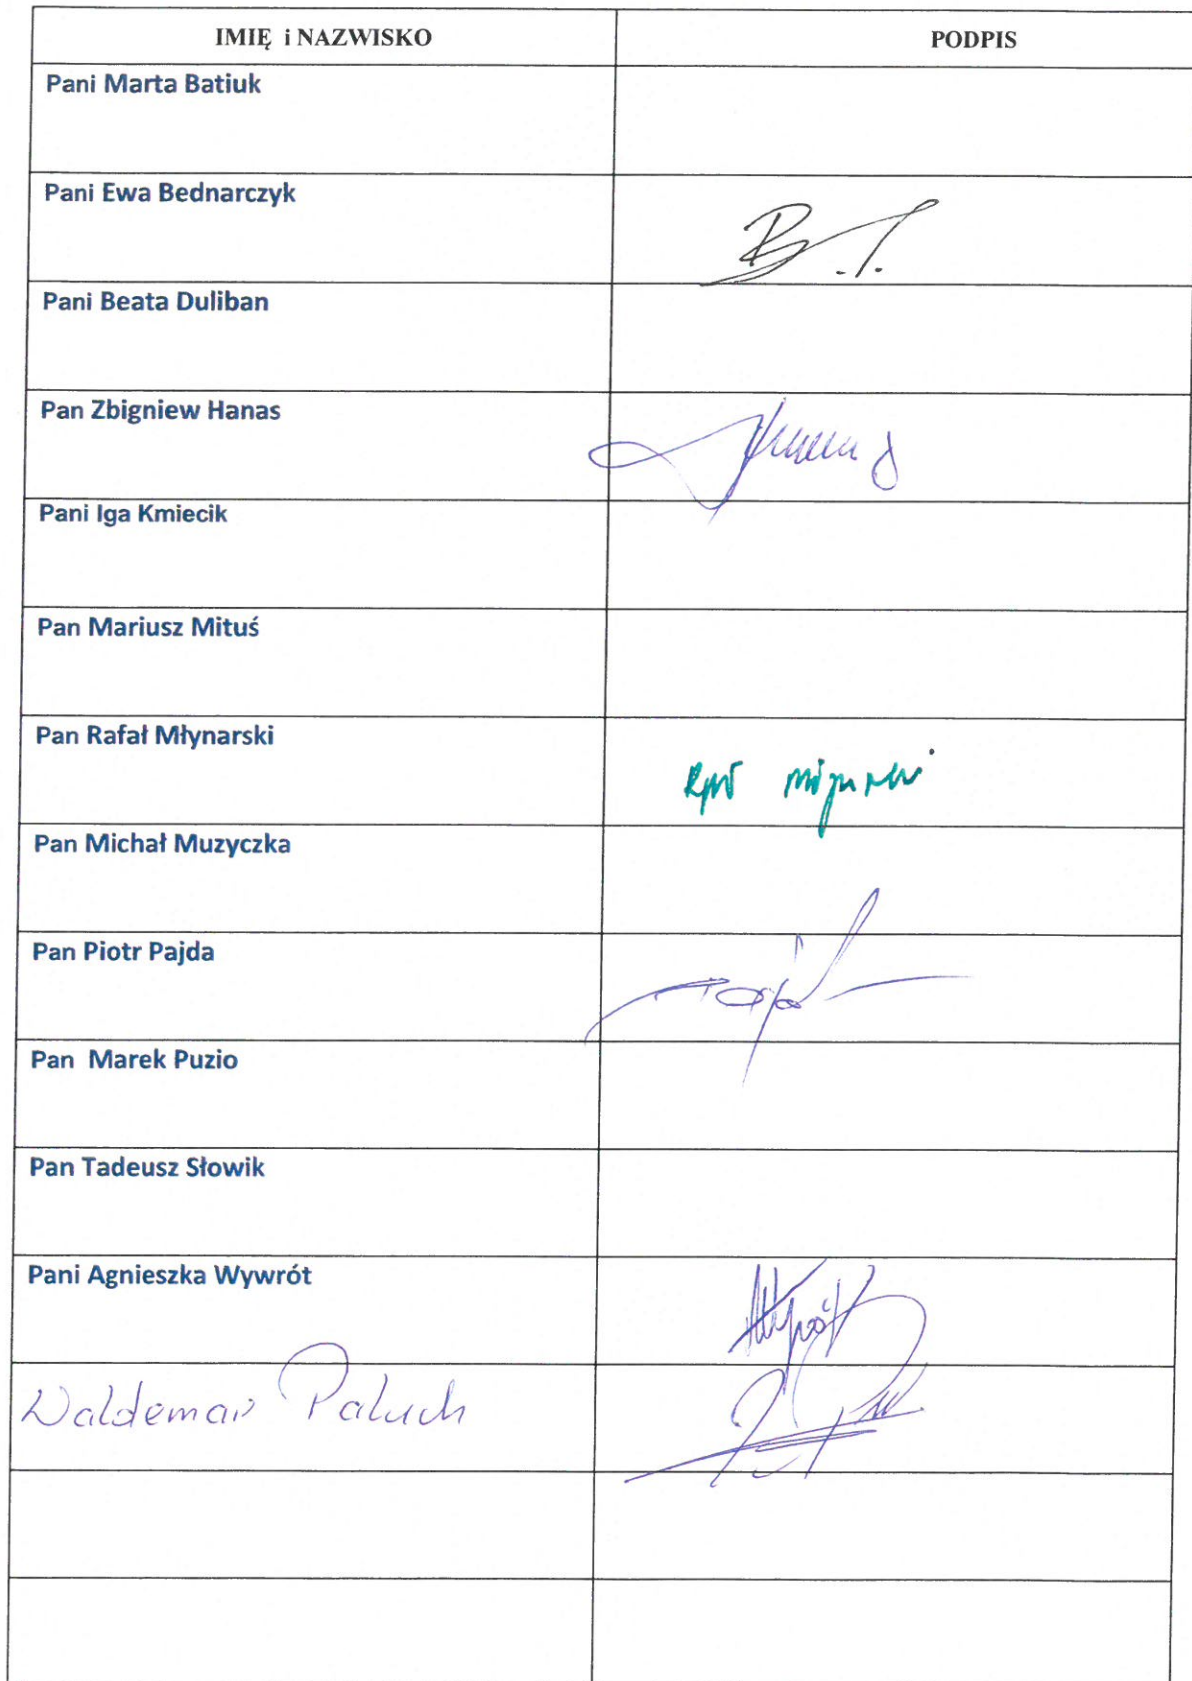 IMIĘ i NAZWISKO PODPIS
Pani Marta Batiuk
Pani Ewa Bednarczyk
Pani Beata Duliban
Pan Zbigniew Hanas
Pani Iga Kmiecik
Pan Mariusz Mituś
Pan Rafał Młynarski
Pan Michał Muzyczka
Pan Piotr Pajda
Pan Marek Puzio
Pan Tadeusz Słowik
Pani Agnieszka Wywrót
Waldemar Paluch